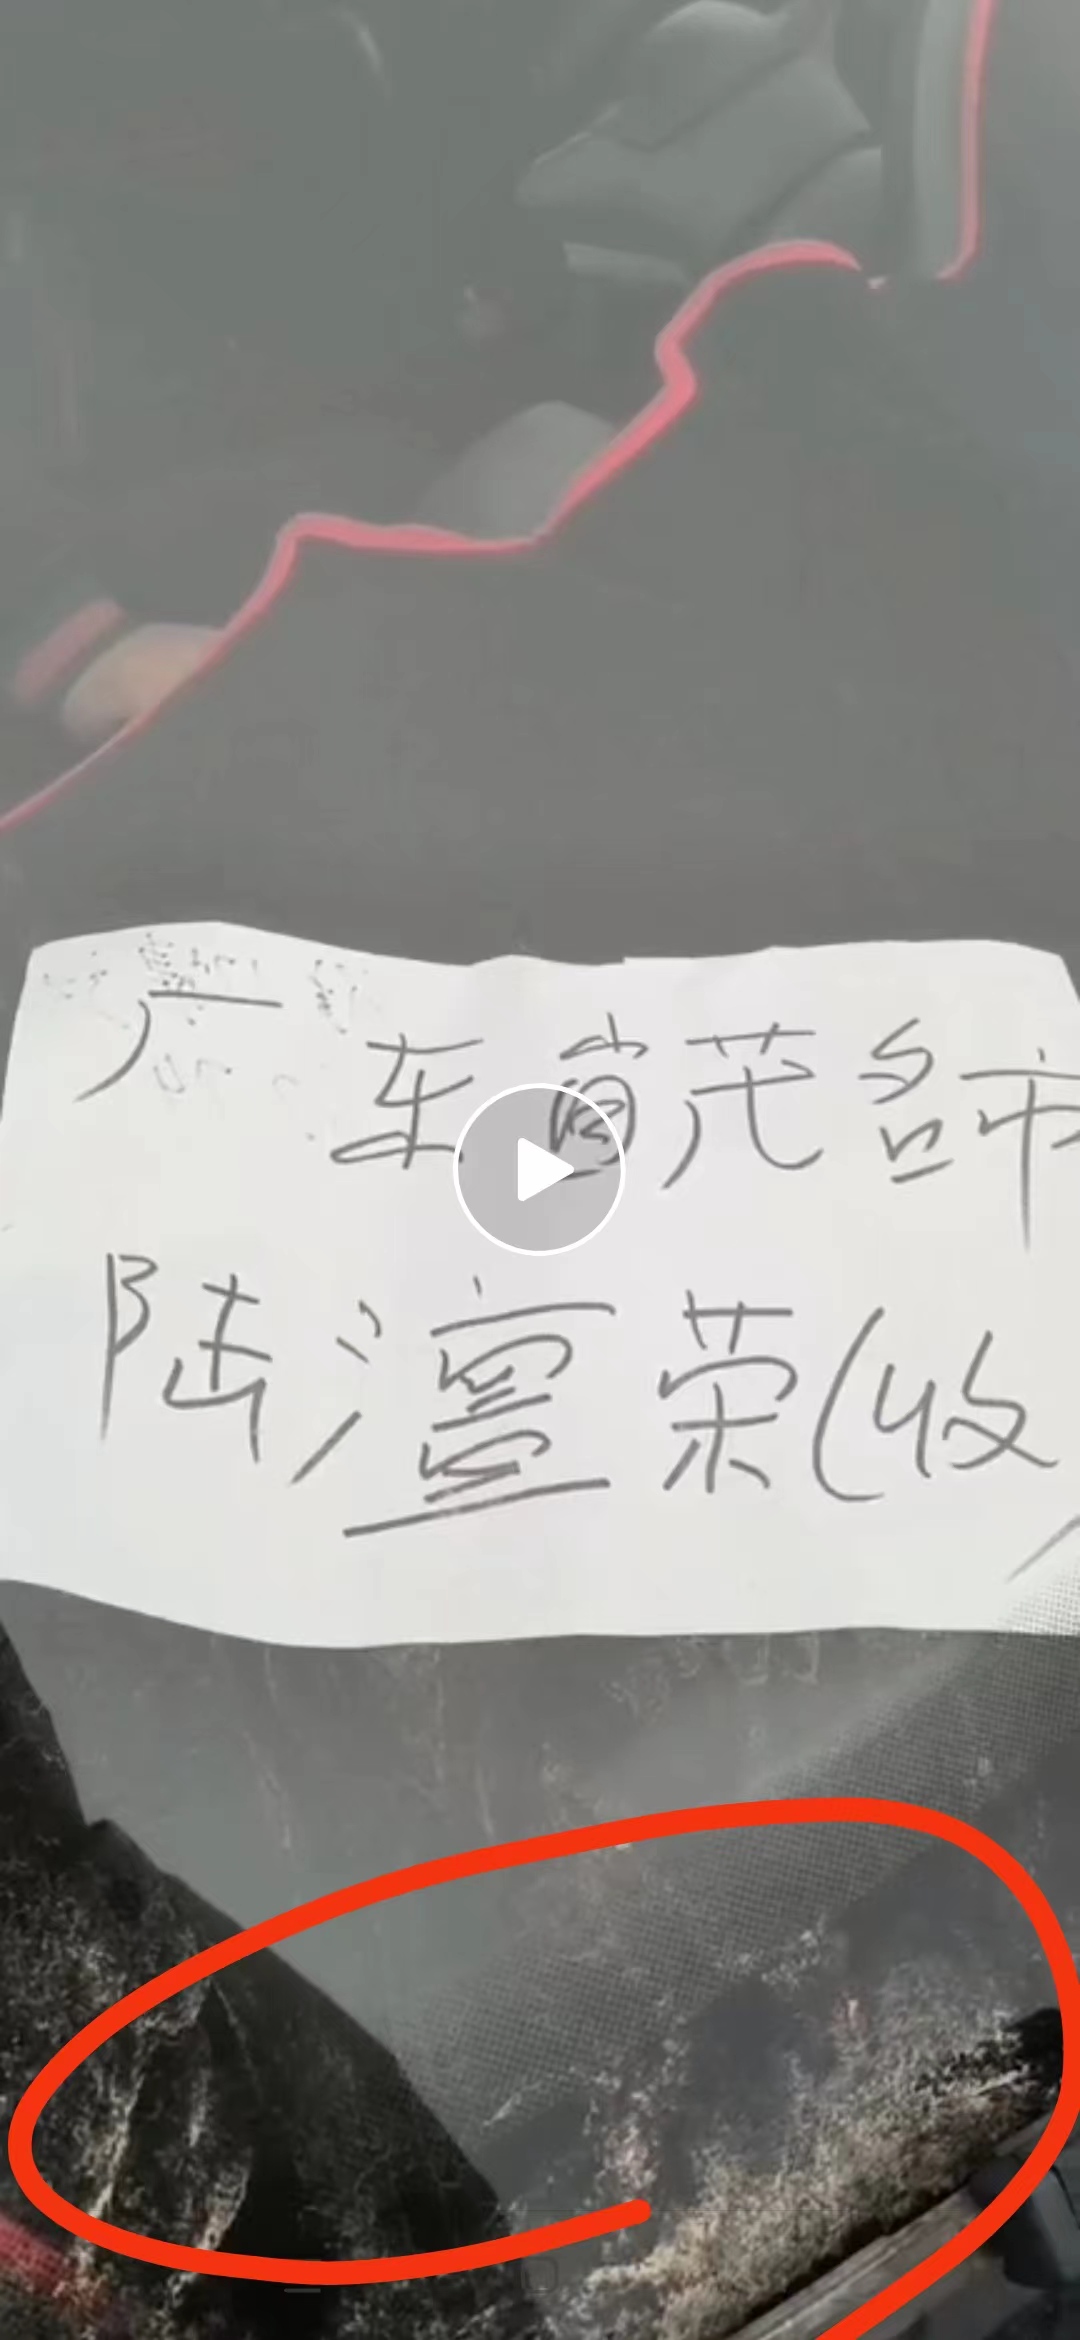 广东省茂名市
陆澶荣(收